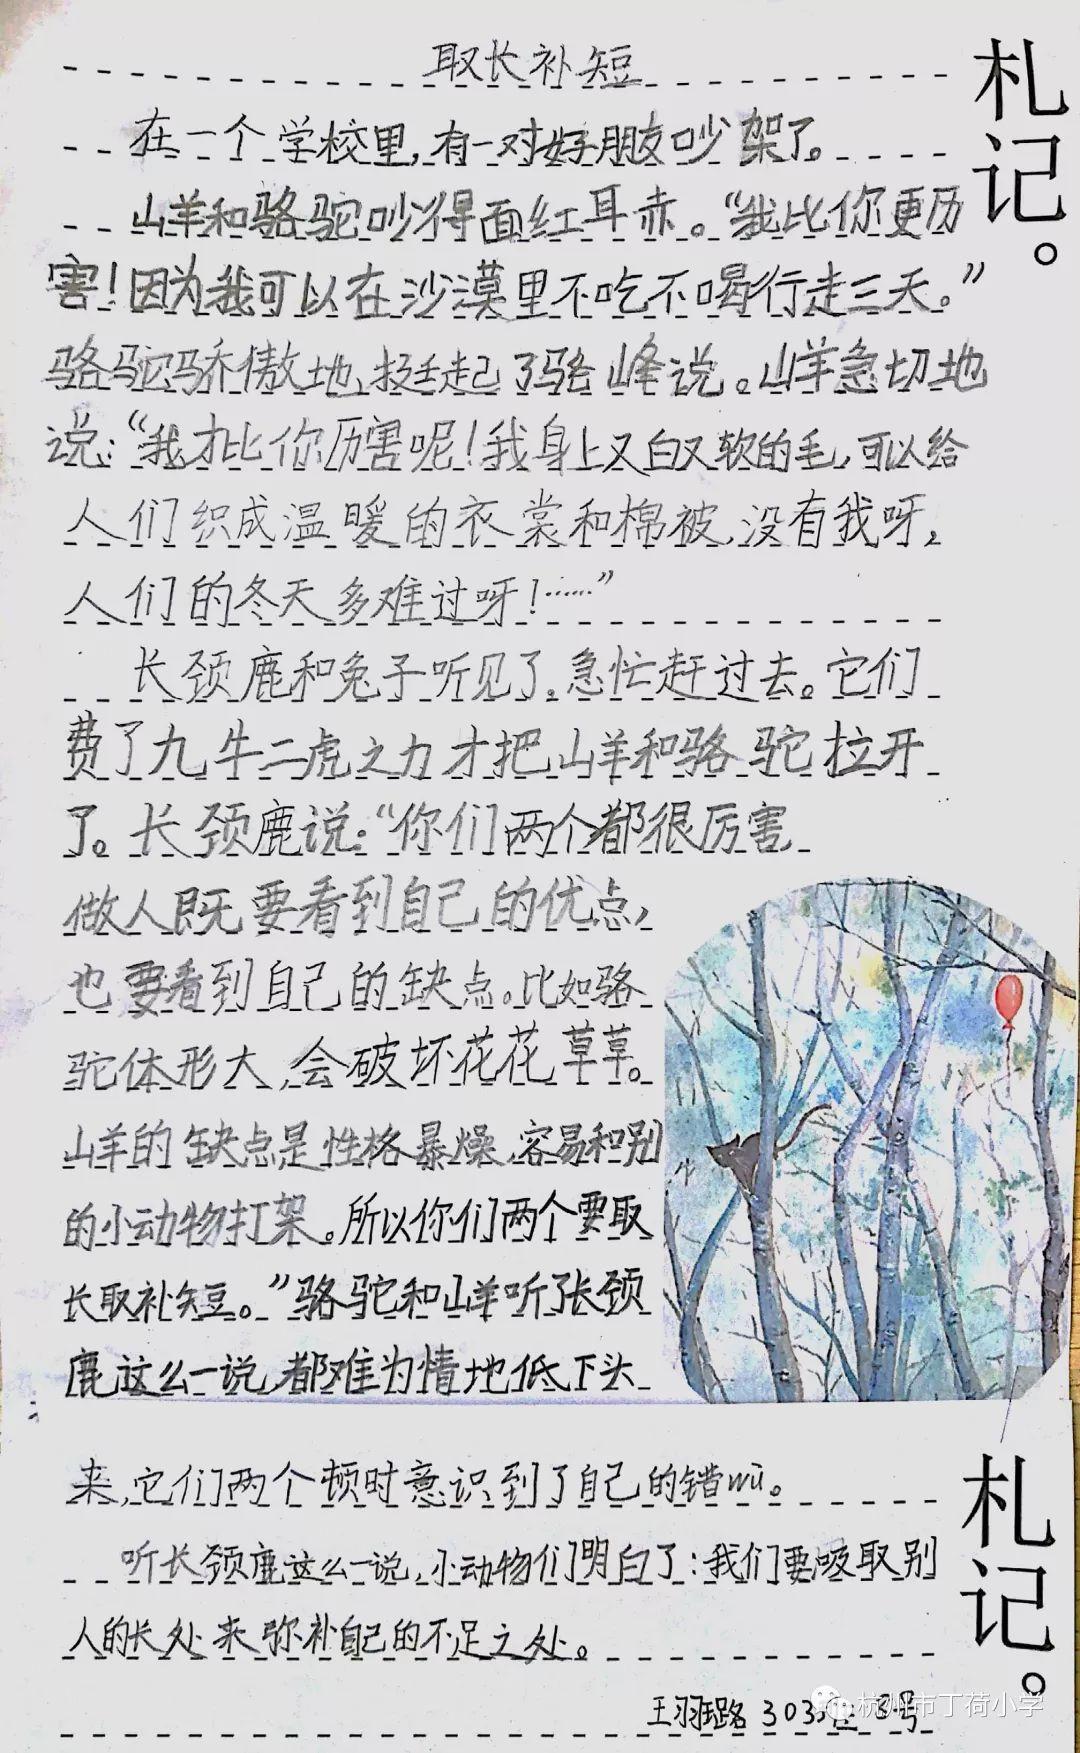 取长补短
札记。
在一个学校里,有一对好朋友吵架了。
山羊和骆驼吵得面红耳赤。“我比你更厉
害!因为我可以在沙漠里不吃不喝行走三天。”
骆驼骄傲地,挺起了骆峰说。山羊急切地
说:“我才比你厉害呢!我身上又白又软的毛,可以给
人们织成温暖的衣裳和棉被,没有我呀,
人们的冬天多难过呀!……”
长颈鹿和兔子听见了,急忙赶过去。它们
费了九牛二虎之力才把山羊和骆驼拉开
了。长颈鹿说:“你们两个都很厉害,
做人既要看到自己的优点,
也要看到自己的缺点。比如骆
驼体形大,会破坏花花草草。
山羊的缺点是性格暴燥,容易和别
的小动物打架。所以你们两个要取
长取补短。”骆驼和山羊听张颈
鹿这么一说,都难为情地低下头
来,它们两个顿时意识到了自己的错wù。
听长颈鹿这么一说,小动物们明白了:我们要吸取别
人的长处来弥补自己的不足之处。
札记。
303 3号
杭州市丁荷小学